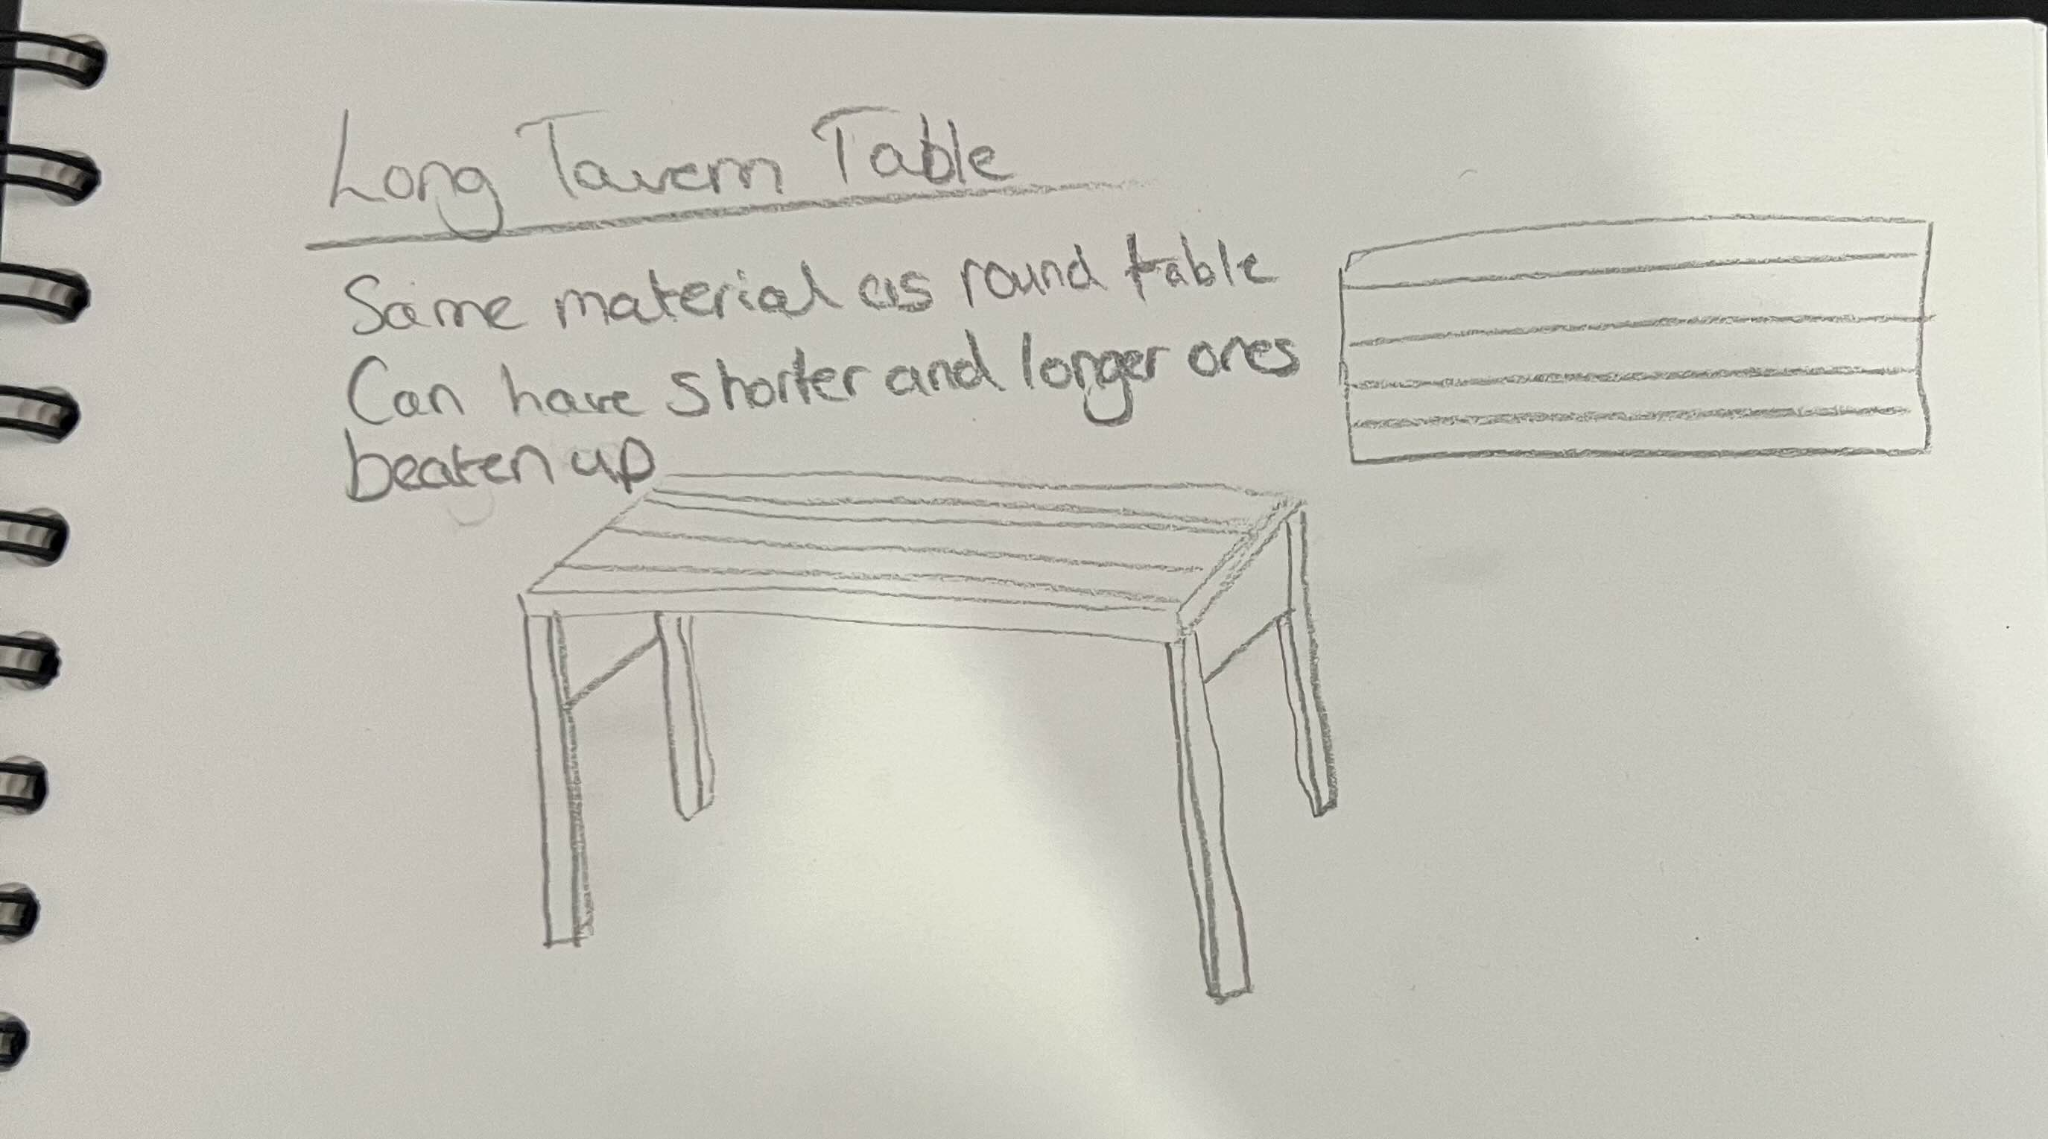 Long Tavern Table
Same material as round table
Can have shorter and longer ones
beaten up